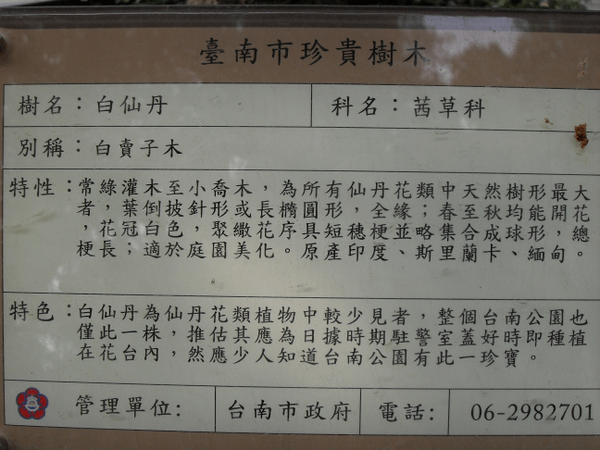 臺南市珍貴樹木
樹名：白仙丹 科名：茜草科
別稱：白賣子木
特性：常綠灌木至小喬木，為所有仙丹花類中天然樹形最大
者，葉倒披針形或長橢圓形，全緣；春至秋均能開花
，花冠白色，聚繖花序具短穗梗並略集合成球形，總
梗長；適於庭園美化。原產印度、斯里蘭卡、緬甸。
特色：白仙丹為仙丹花類植物中較少見者，整個台南公園也
僅此一株，推估其應為日據時期駐警室蓋好時即種植
在花台內，然應少人知道台南公園有此一珍寶。
管理單位： 台南市政府 電話： 06-2982701